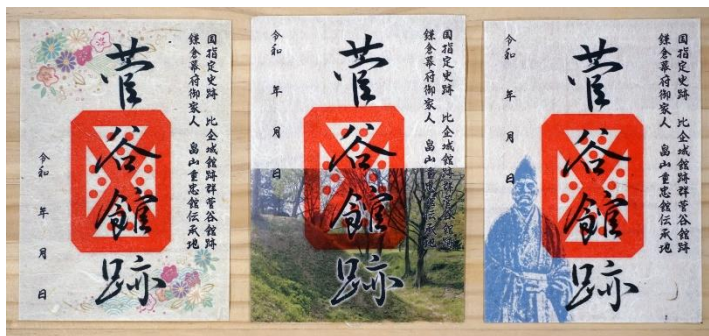 国指定史跡 比企城館跡群菅谷館跡
鎌倉幕府御家人 畠山重忠館伝承地
菅谷館跡
令和 年 月 日
国指定史跡 比企城館跡群菅谷館跡
鎌倉幕府御家人 畠山重忠館伝承地
菅谷館跡
令和 年 月 日
国指定史跡 比企城館跡群菅谷館跡
鎌倉幕府御家人 畠山重忠館伝承地
菅谷館跡
令和 年 月 日